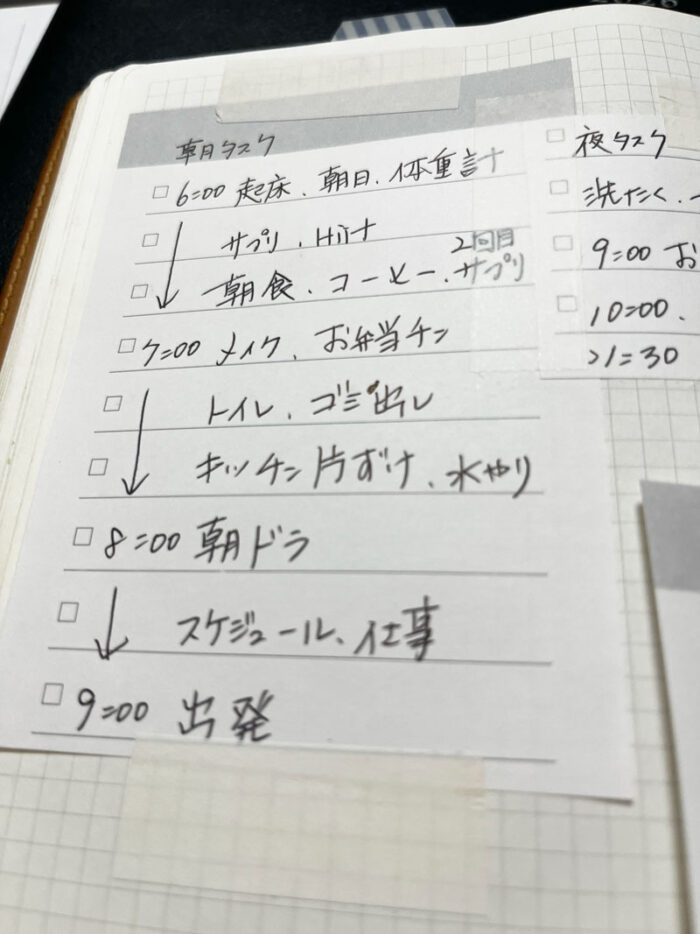 朝タスク
6:00 起床、朝日、体重計
サプリ、HIIT
2回目
朝食、コーヒー、サプリ
7:00 メイク、お弁当チン
トイレ、ゴミ出し
キッチン片ずけ、水やり
8:00 朝ドラ
スケジュール、仕事
9:00 出発
夜タスク
洗たく、
9:00 お
10:00、
21:30